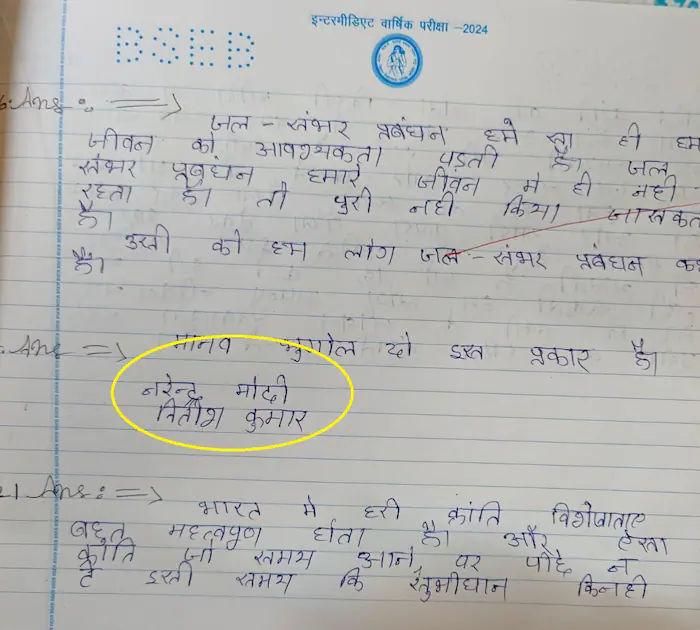 इन्टरमीडिएट वार्षिक परीक्षा -2024
BSEB
Ans :. ⟹
जल - संभर प्रबंधन हमे सा ही हम
जीवन को आवश्यकता पड़ती है। जल
संभर प्रबंधन हमारे जीवन मे ही नही
रहता है। तो पुरी नही किया जासकत
है।
उसी को हम लोग जल - संभर प्रबंधन कह
है।
Ans ⟹ मानव भुगोल दो इस प्रकार है।
नरेन्द्र मोदी
नितीश कुमार
21 Ans : ⟹
भारत मे हरी क्रांति विशेषाताए
बहुत महत्वपुण होता है। और ऐसा
क्रांति जो समय आने पर पीछे न
है इसी समय कि किनही